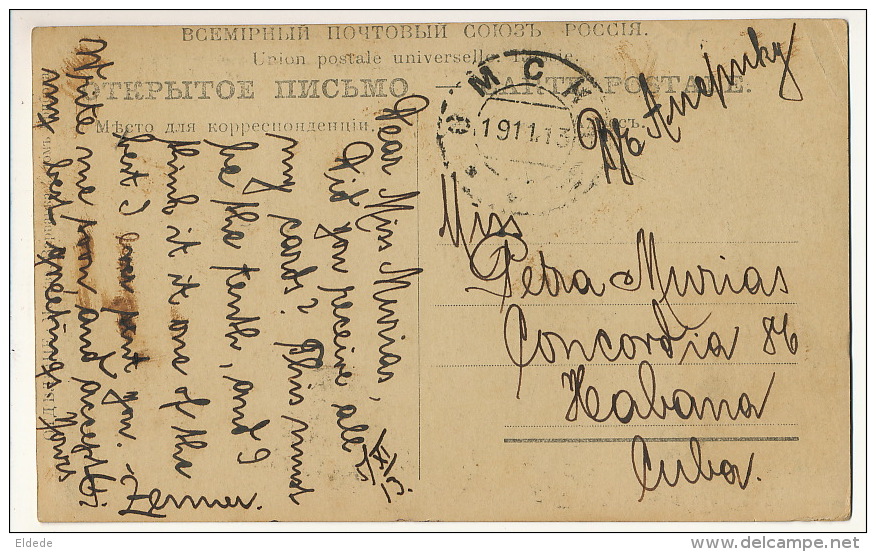 ВСЕМІРНЫЙ ПОЧТОВЫЙ СОЮЗЪ РОССІЯ.
Union postale universelle. Russie.
ОТКРЫТОЕ ПИСЬМО — CARTE POSTALE.
Мѣсто для корреспонденціи.
ОМСКЪ
1911.13
Въ Америку
Miss
Petra Murias
Concordia 86
Habana
Cuba.
Dear Miss Murias,
Did you receive all
my cards? This must
be the tenth, and I
think it is one of the
best I have sent you.
Write me soon and accept
my best greetings
Yours
XI
13.
Eldede
delcampe.net